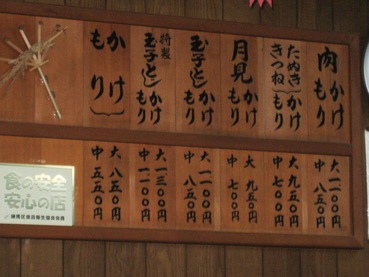 肉 かけ もり
大 一一〇〇円
中 八五〇円
たぬき きつね かけ もり
大 九五〇円
中 七〇〇円
月見 かけ もり
大 九五〇円
中 七〇〇円
玉子とじ かけ もり
大 一一〇〇円
中 八五〇円
特製 玉子とじ かけ もり
大 一三〇〇円
中 一一〇〇円
かけ もり
大 八五〇円
中 五五〇円
食の安全
安心の店